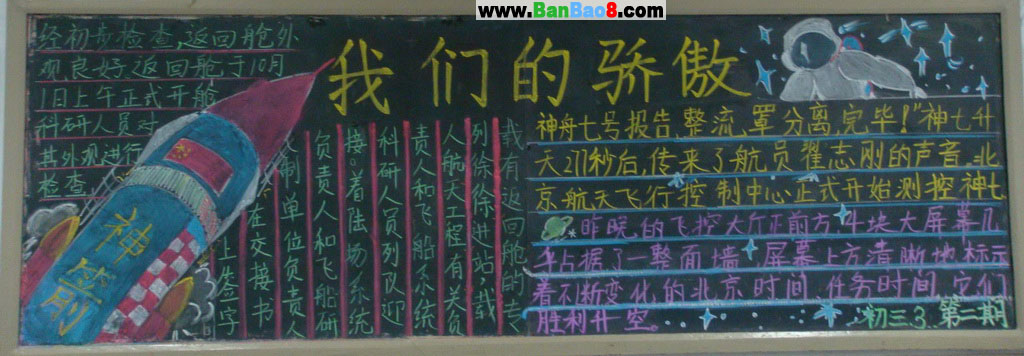 www.BanBao8.com
我们的骄傲
经初步检查,返回舱外
观良好,返回舱于10月
1日上午正式开舱
科研人员对
其外观进行
检查
神
我有返回舱的专
列徐徐进站,载
人航天工程有关负
责人和飞船系统
科研人员列队迎
接。着陆场系统
负责人和飞船研
制单位负责人
在交接书
上签字
神舟七号报告,整流罩分离,完毕!"神七升
天277秒后,传来了航员翟志刚的声音。北
京航天飞行控制中心正式开始测控神七
昨晚,的飞控大厅正前方,4块大屏幕几
乎占据了一整面墙,屏幕上方清晰地标示
着不断变化的北京时间、任务时间,它们
胜利升空。
初三3 第二期